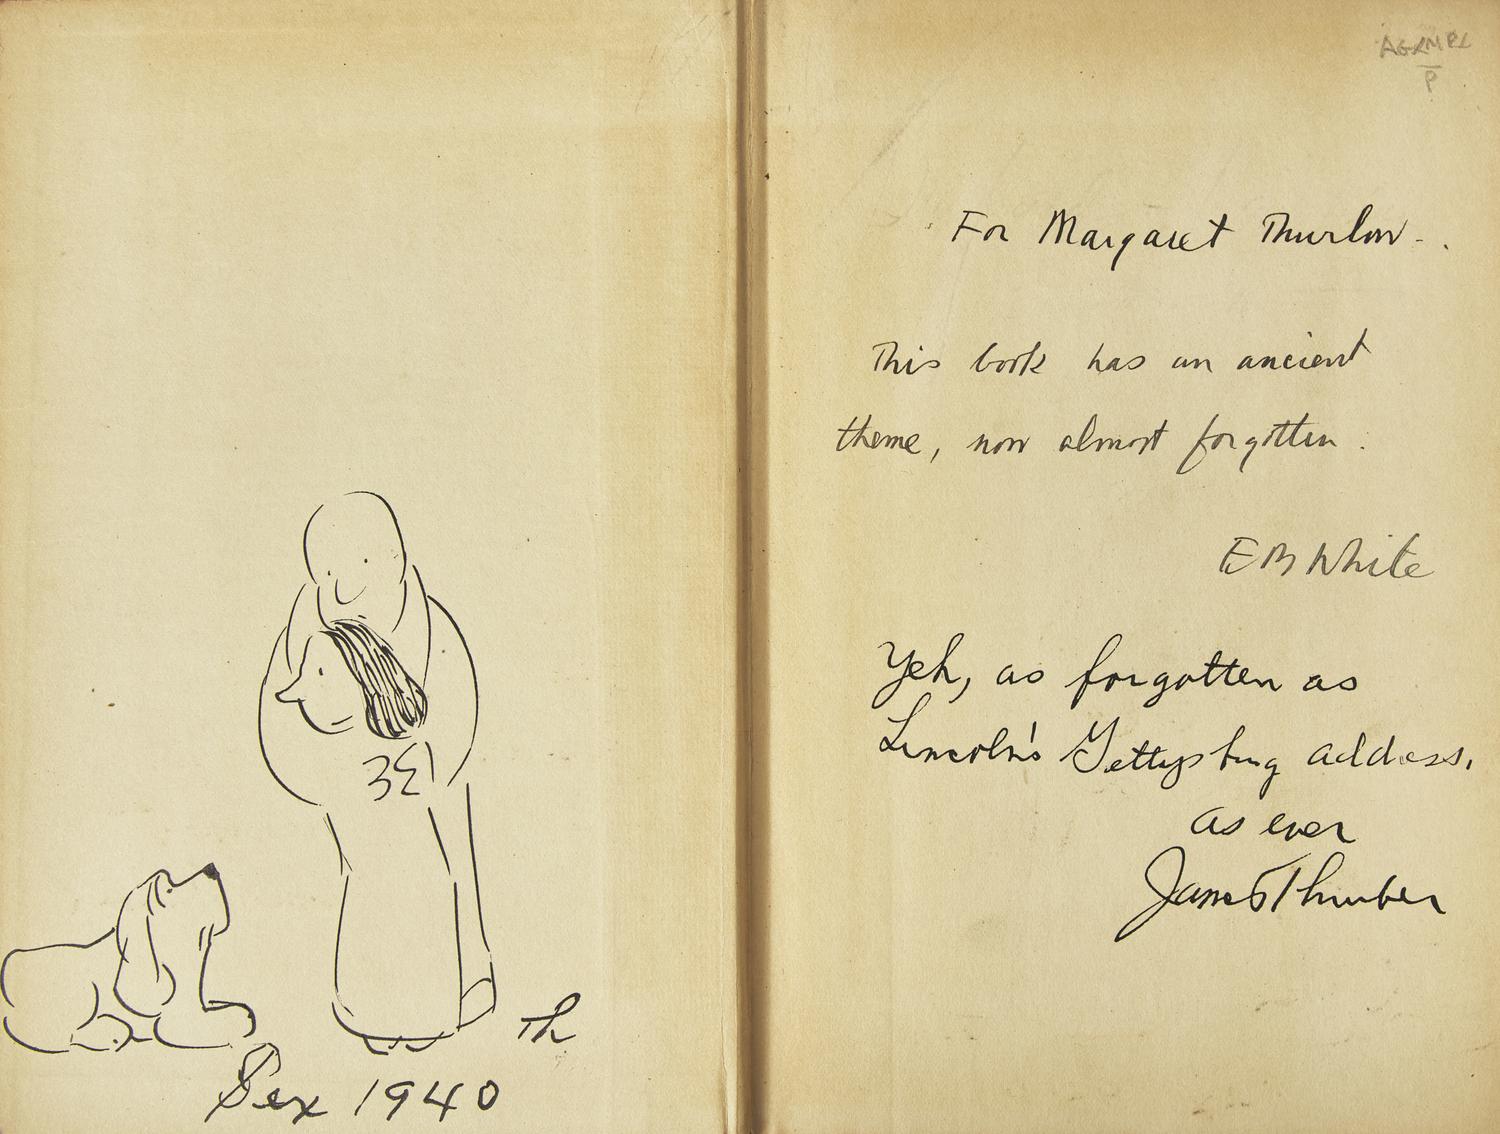 Th
Sex 1940
For Margaret Thurlow.
This book has an ancient
theme, now almost forgotten.
EB White
Yeh, as forgotten as
Lincoln's Gettysburg address.
as ever
James Thurber